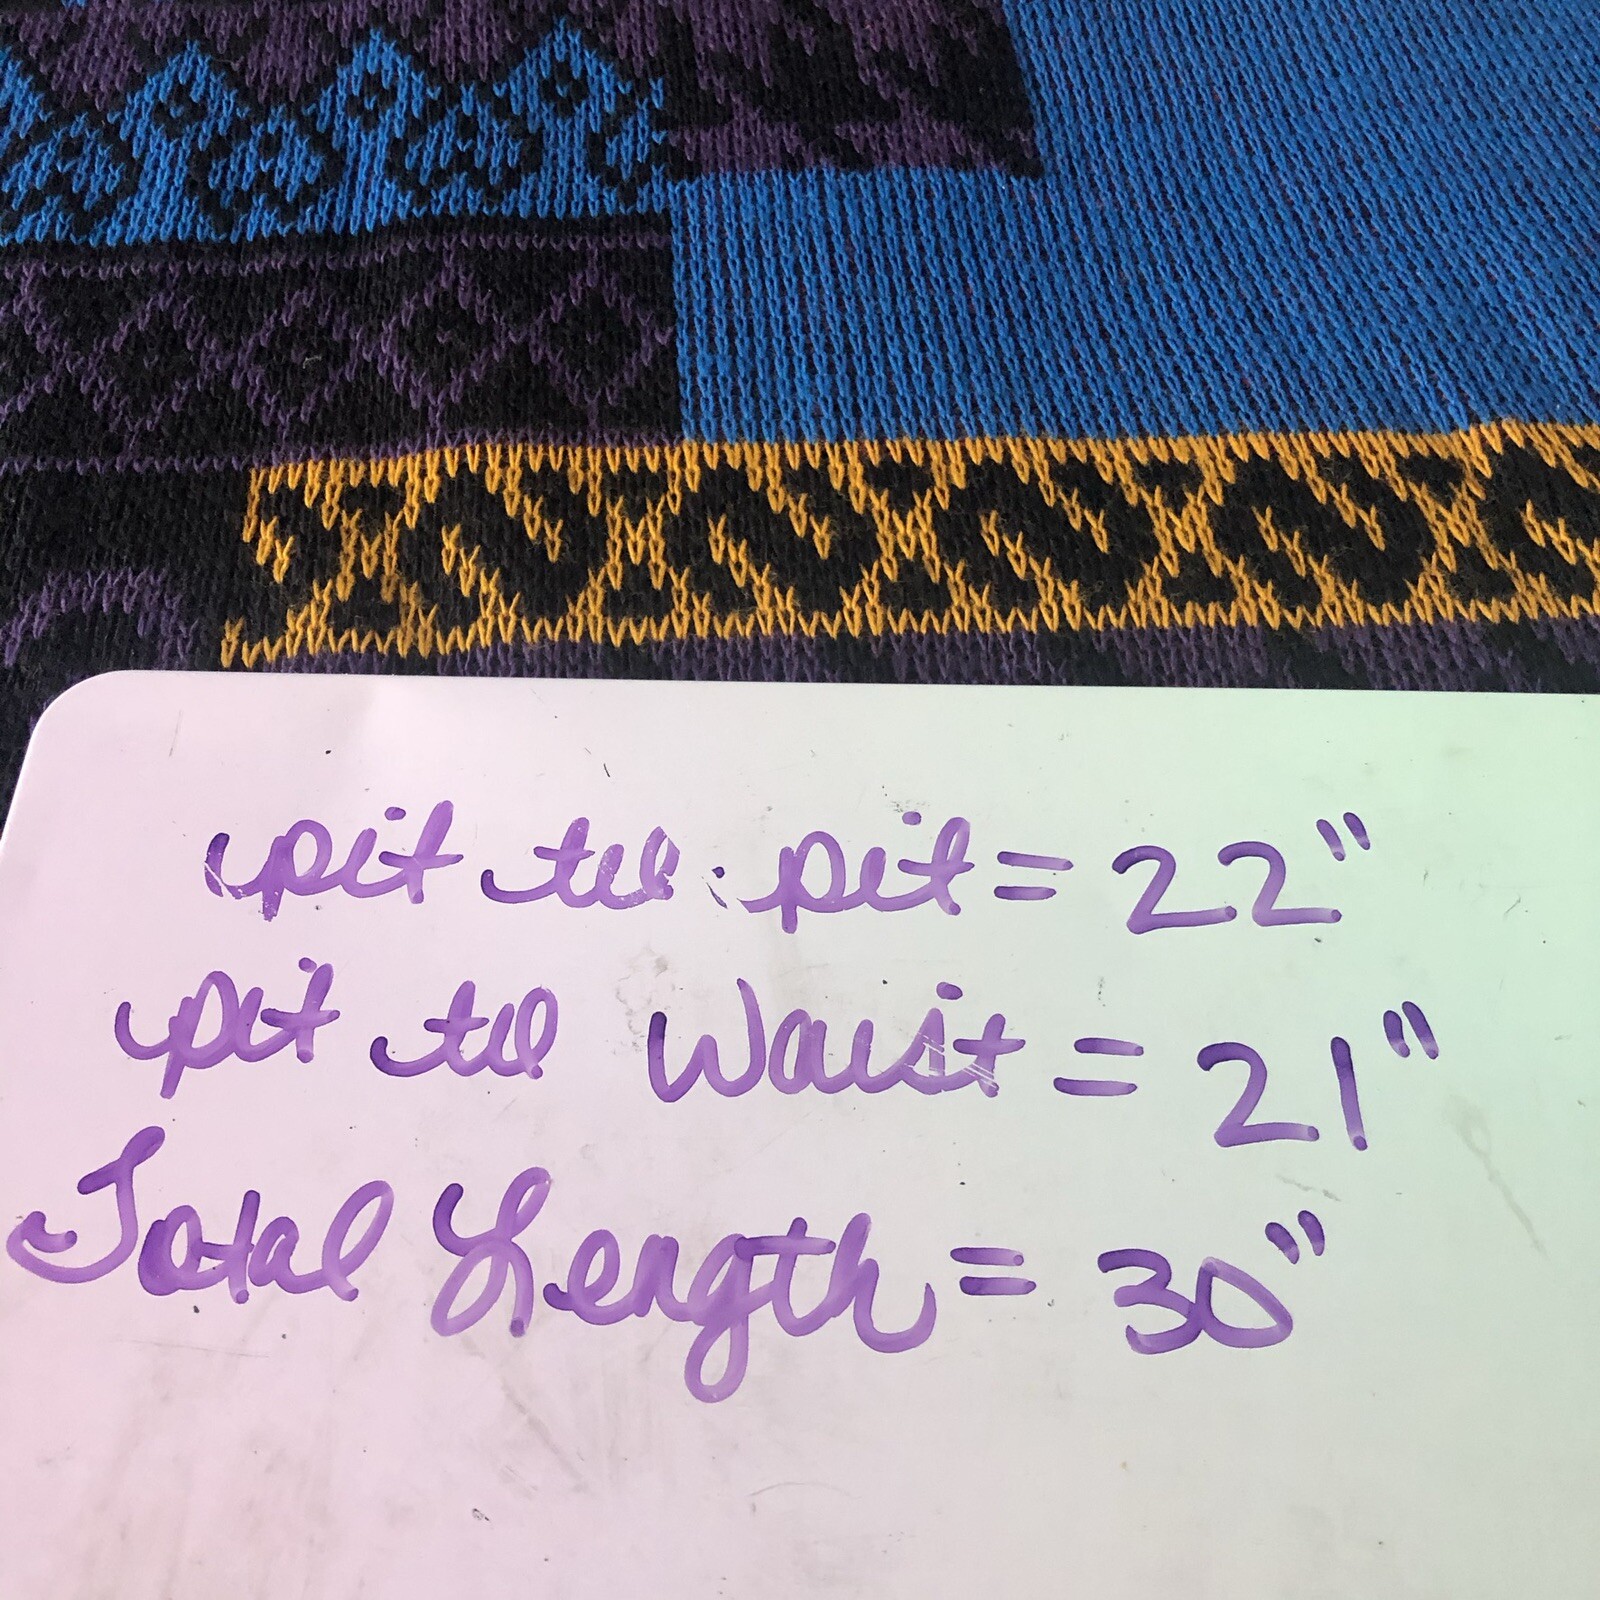 pit til pit = 22"
pit til Waist = 21"
Total Length = 30"